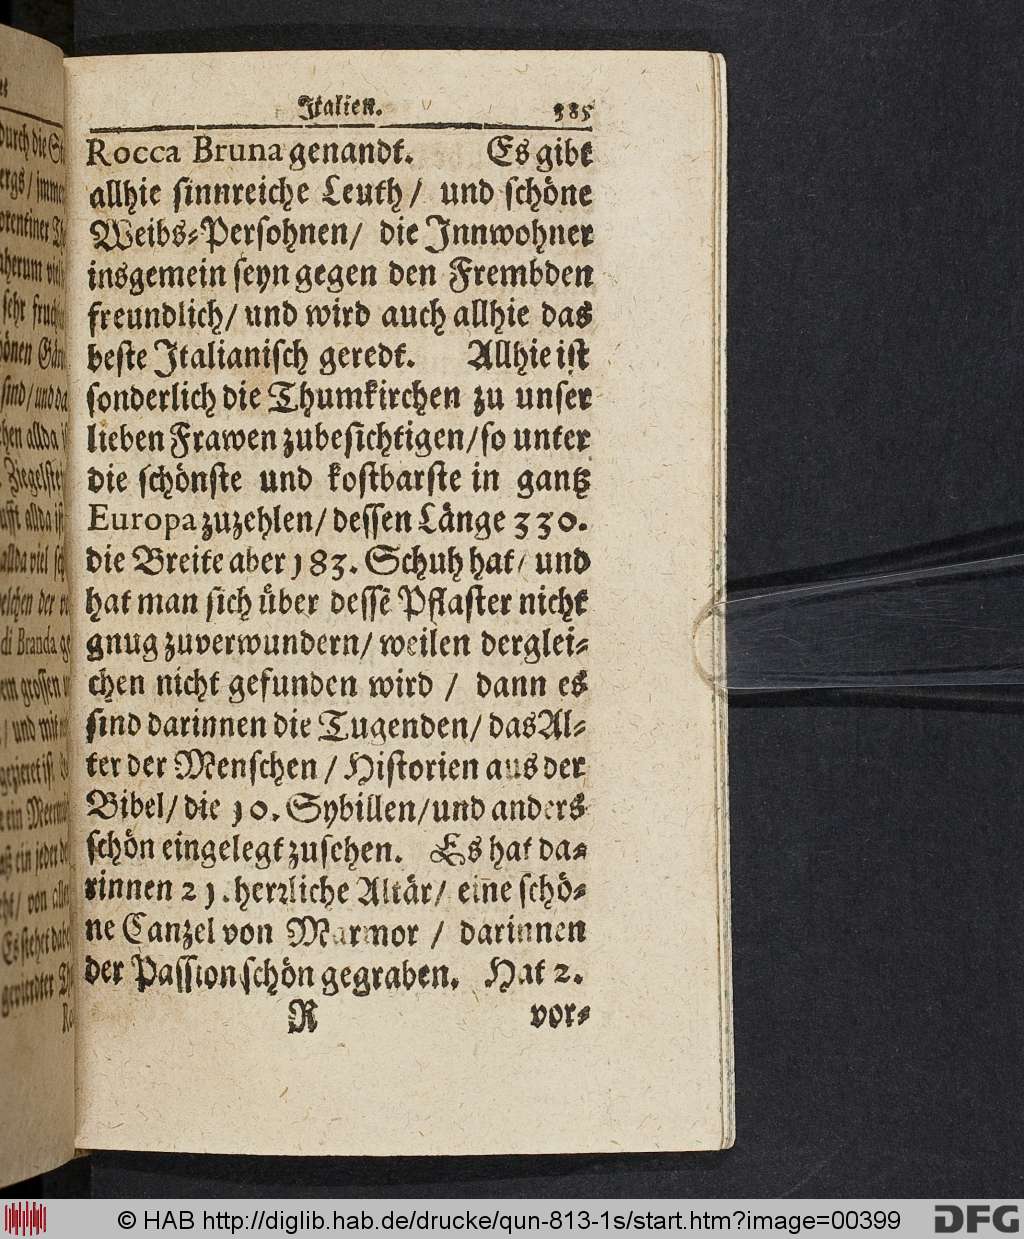 Italien. 385
Rocca Bruna genandt. Es gibt
allhie sinnreiche Leuth / und schöne
Weibs-Persohnen / die Innwohner
insgemein seyn gegen den Frembden
freundlich / und wird auch allhie das
beste Italianisch geredt. Allhie ist
sonderlich die Thumkirchen zu unser
lieben Frawen zubesichtigen / so unter
die schönste und kostbarste in gantz
Europa zuzehlen / dessen Länge 330.
die Breite aber 183. Schuh hat / und
hat man sich über dessē Pflaster nicht
gnug zuverwundern / weilen derglei-
chen nicht gefunden wird / dann es
sind darinnen die Tugenden / das Al-
ter der Menschen / Historien aus der
Bibel / die 10. Sybillen / und anders
schön eingelegt zusehen. Es hat da-
rinnen 21. herrliche Altär / eine schö-
ne Canzel von Marmor / darinnen
der Passion schön gegraben. Hat 2.
R vor-
durch die
di Branda
© HAB http://diglib.hab.de/drucke/qun-813-1s/start.htm?image=00399
DFG